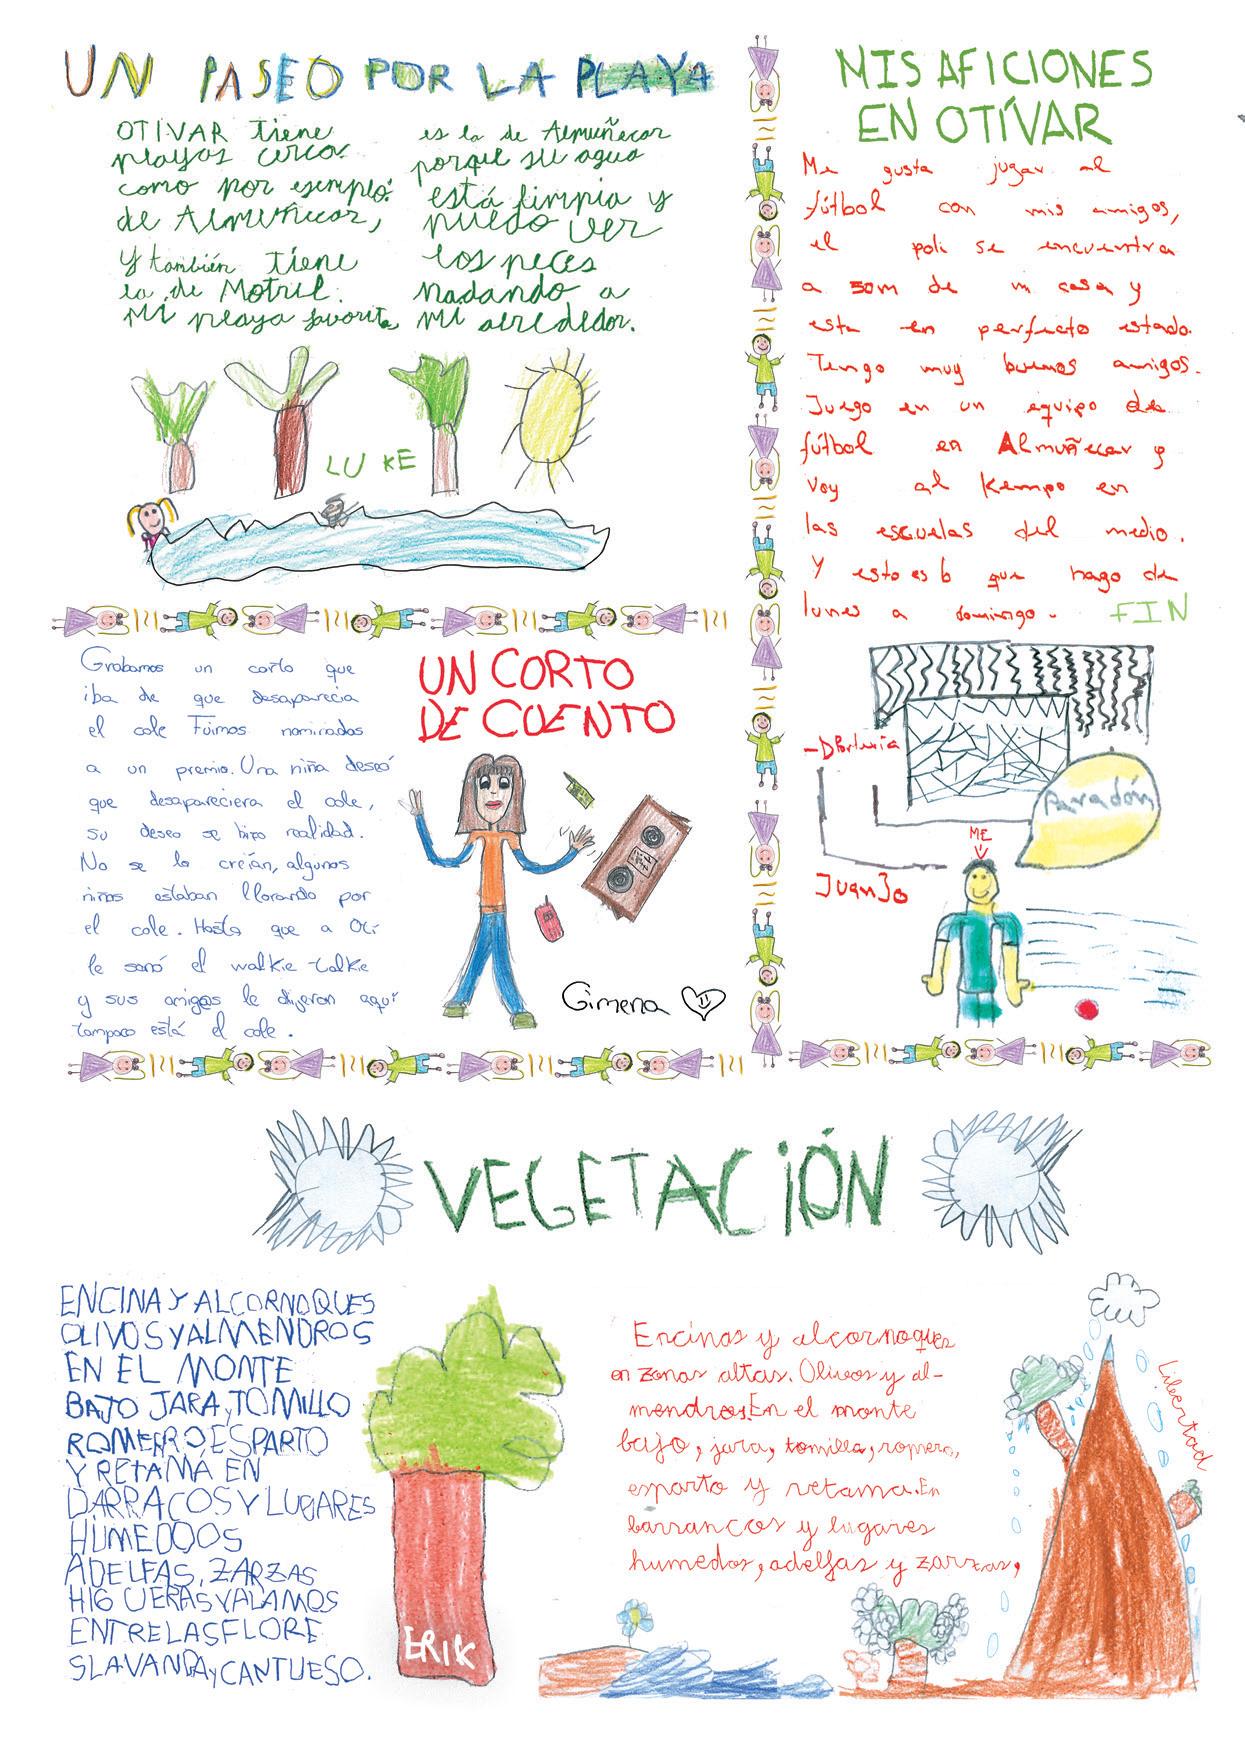 UN PASEO POR LA PLAYA
OTIVAR tiene
playas cerca
como por esemplo:
de Almuñecar,
y también tiene
la de Motril.
Mi playa favorita
es la de Almuñecar
porque su agua
está limpia y
puedo ver
los peces
nadando a
mi alrededor.
LUKE
MIS AFICIONES
EN OTÍVAR
Me gusta jugar al
fútbol con mis amigos,
el poli se encuentra
a 50m de m casa y
esta en perfecto estado.
Tengo muy buenos amigos.
Juego en un equipo de
fútbol en Almuñecar y
voy al Kempo en
las escuelas del medio.
Y esto es lo que hago de
lunes a domingo. FIN
Paradón
ME
JuanJo
Grabamos un corto que
iba de que desaparecia
el cole Fuimos nominados
a un premio. Una niña deseó
que desapareciera el cole,
su deseo se hizo realidad.
No se lo creían, algunos
niños estaban llorando por
el cole. Hasta que a Oti
le sonó el walkie-talkie
y sus amig@s le dijeron aquí
tampoco está el cole.
UN CORTO
DE CUENTO
Gimena
VEGETACIÓN
ENCINA Y ALCORNOQUES
OLIVOS Y ALMENDROS
EN EL MONTE
BAJO JARA, TOMILLO
ROMERO, ESPARTO
Y RETAMA EN
DARRACOS Y LUGARES
HUMEDOOS
ADELFAS, ZARZAS
HIGUERAS Y ALAMOS
ENTRE LAS FLORE
S LAVANDA y CANTUESO.
ERIK
Encinas y alcornoques
en zonas altas. Olivos y al-
mendros. En el monte
bajo, jara, tomillo, romero,
esparto y retama. En
barrancos y lugares
humedos, adelfas y zarzas,
Libertad